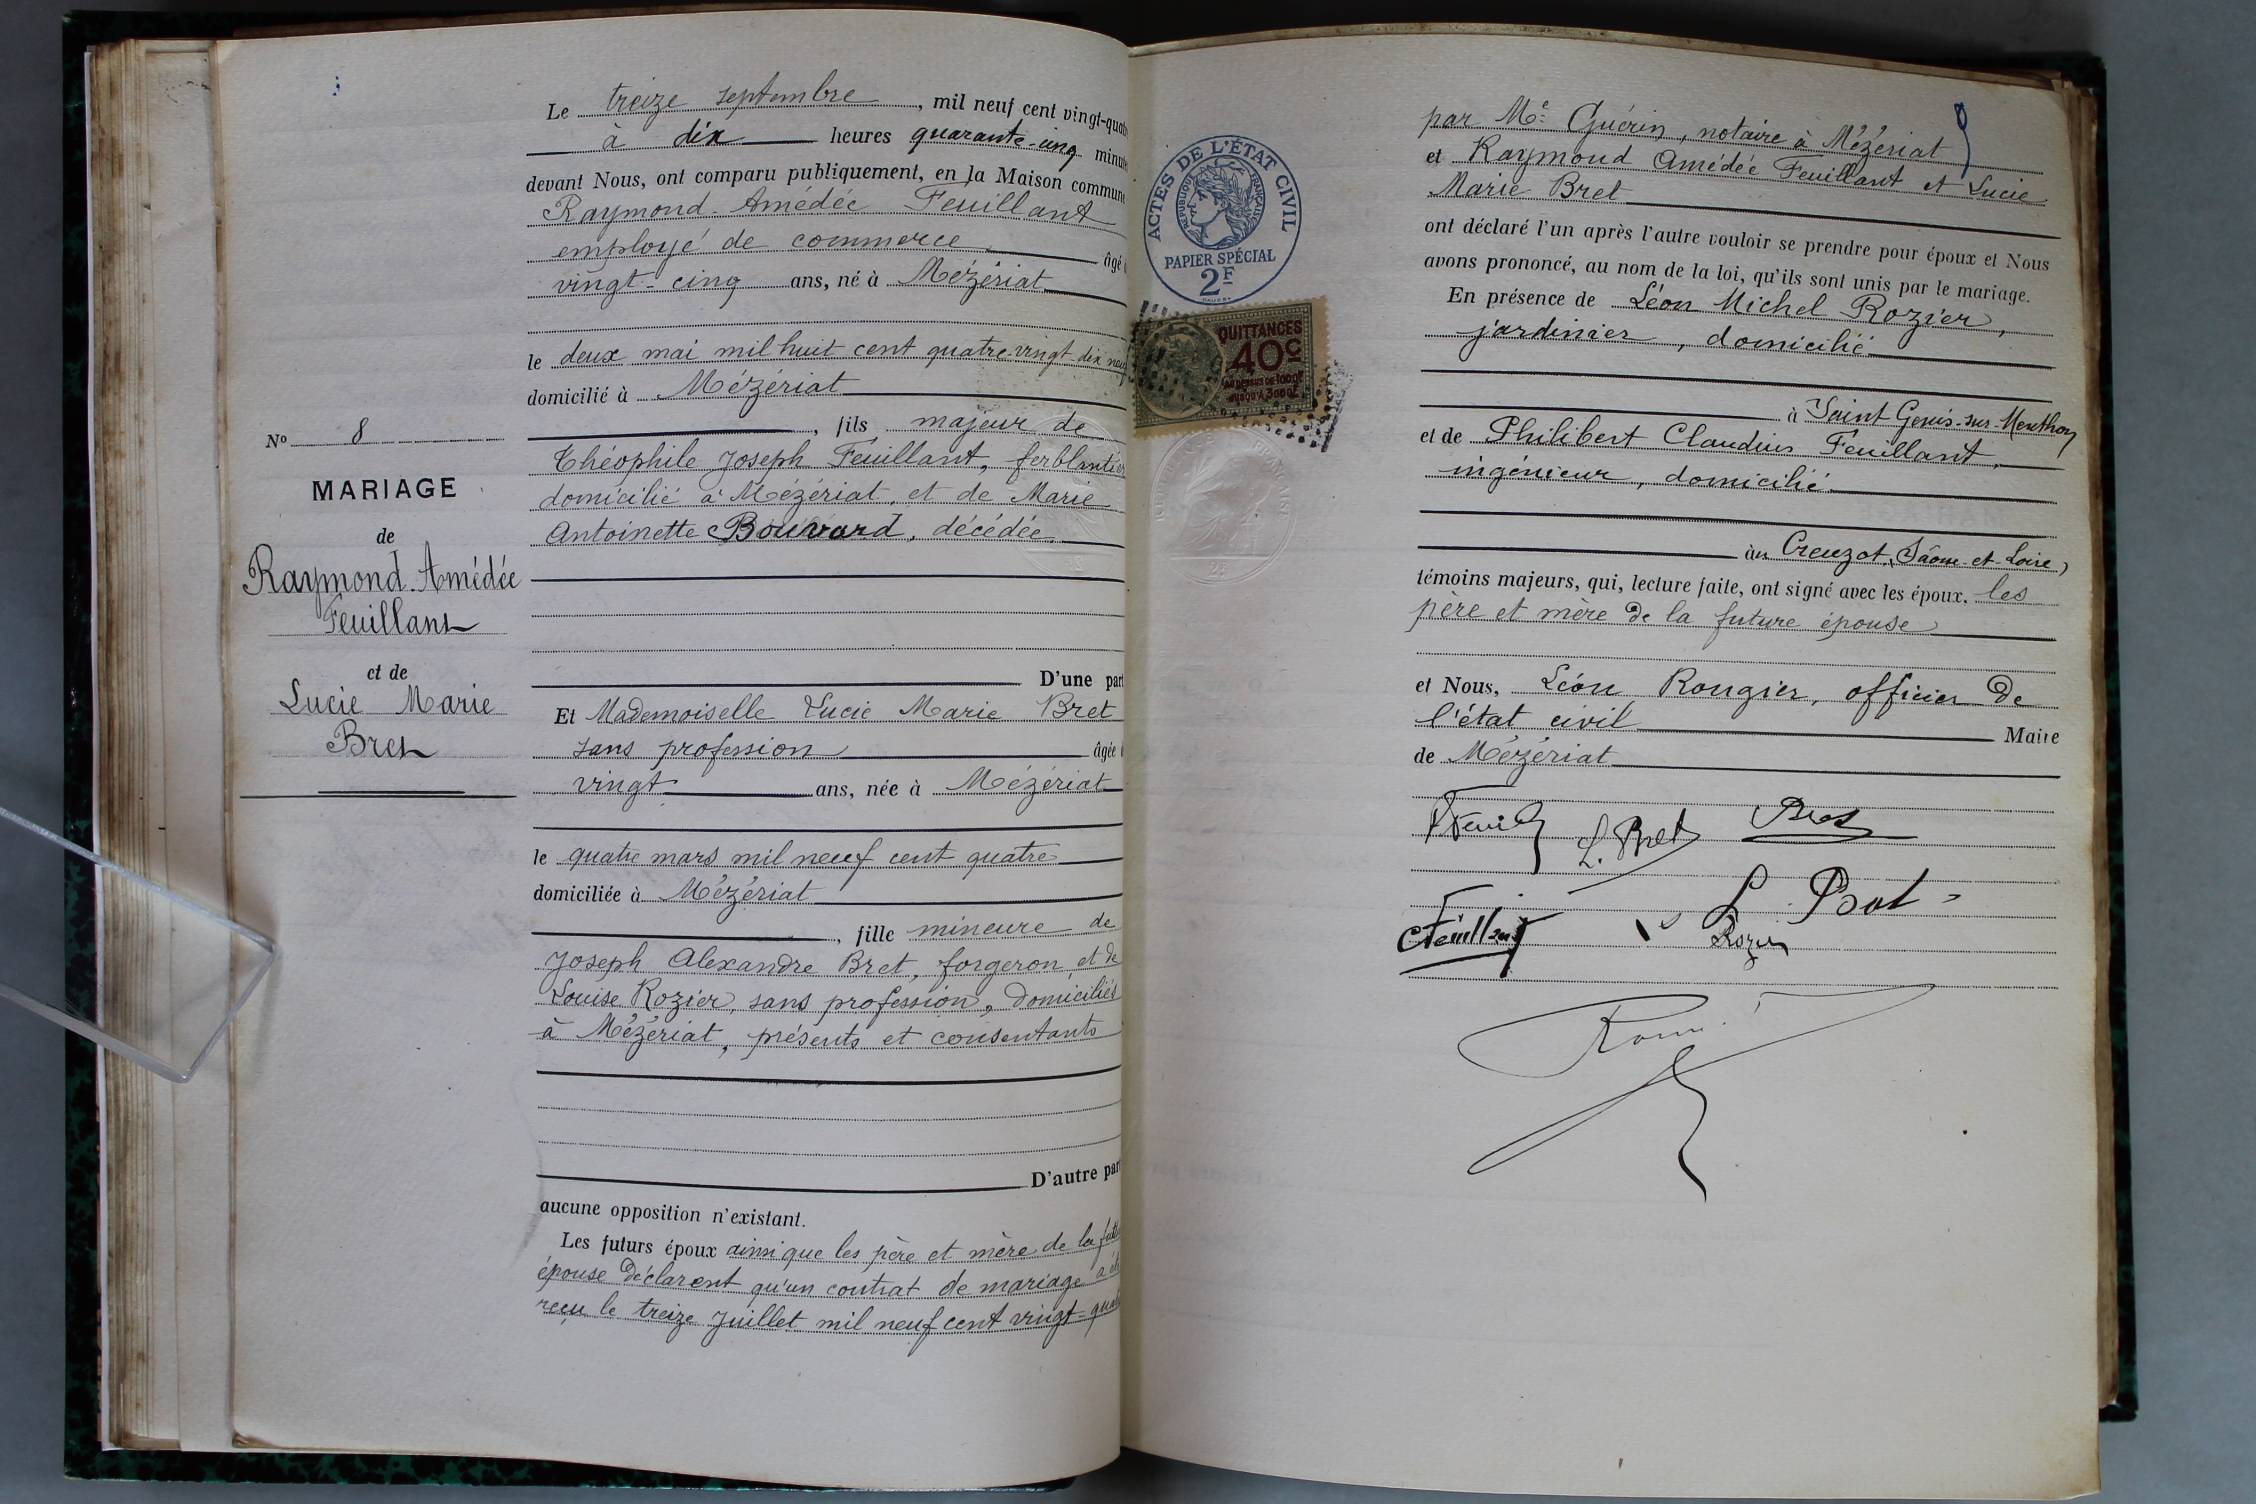 N° 8
MARIAGE
de
Raymond Amédée
Feuillant
et de
Lucie Marie
Bret
Le treize septembre, mil neuf cent vingt-quat
à dix heures quarante-cinq minute
devant Nous, ont comparu publiquement, en la Maison commune
Raymond Amédée Feuillant
employé de commerce âgé
vingt-cinq ans, né à Mézériat
le deux mai mil huit cent quatre-vingt dix neuf
domicilié à Mézériat
, fils majeur de
Théophile Joseph Feuillant, ferblantier
domicilié à Mézériat, et de Marie
Antoinette Bouvard, décédée.
D'une part
Et Mademoiselle Lucie Marie Bret
sans profession âgée
vingt ans, née à Mézériat
le quatre mars mil neuf cent quatre
domiciliée à Mézériat
, fille mineure de
Joseph Alexandre Bret, forgeron, et de
Louise Rozier, sans profession, domiciliés
à Mézériat, présents et consentants
D'autre part
aucune opposition n'existant.
Les futurs époux ainsi que les père et mère de la
épouse déclarent qu'un contrat de mariage a été
reçu le treize juillet mil neuf cent vingt-quat
ACTES DE L'ÉTAT CIVIL
RÉPUBLIQUE FRANÇAISE
PAPIER SPÉCIAL
2F
QUITTANCES
40c
AU DESSUS DE 1000F
JUSQU'A 3000F
par Me Guérin, notaire à Mézériat
et Raymond Amédée Feuillant et Lucie
Marie Bret
ont déclaré l'un après l'autre vouloir se prendre pour époux et Nous
avons prononcé, au nom de la loi, qu'ils sont unis par le mariage.
En présence de Léon Michel Rozier,
jardinier, domicilié
à Saint Genis-sur-Menthon
et de Philibert Claudius Feuillant,
ingénieur, domicilié
au Creuzot, (Sâone-et-Loire)
témoins majeurs, qui, lecture faite, ont signé avec les époux, les
père et mère de la future épouse
et Nous, Léon Rougier, officier de
l'état civil Maire
de Mézériat
L. Bret
Bret
CFeuillant
L. Bret
Rozier